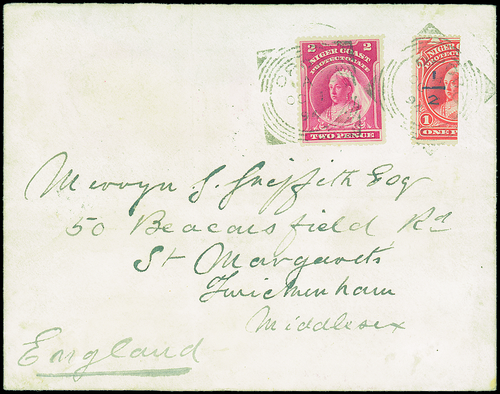 2 2
NIGER COAST
PROTECTORATE
TWO PENCE
NIGER
PROTEC
1
2
1
ONE P
Mervyn G. Griffith Esq
50 Beaconsfield Rd
St Margarets
Twickenham
Middlesex
England